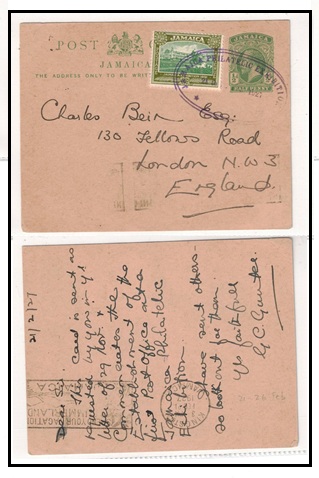 POST
JAMAICA
THE ADDRESS ONLY TO BE WRIT
JAMAICA
JAMAICA
HALF PENNY
PHILATELIC EXHIBITION
Charles Bein Esq:
130 Fellows Road
London. N.W3
England.
21/2/27
Dear Sir
This card is sent as
requested by you in ys
letter of 29 Nov. &
Commemorates the
Establishment of the
first Post Office at a
Jamaica Philatelic
Exhibition.
I have sent others
so look out for them.
Ys faithfully